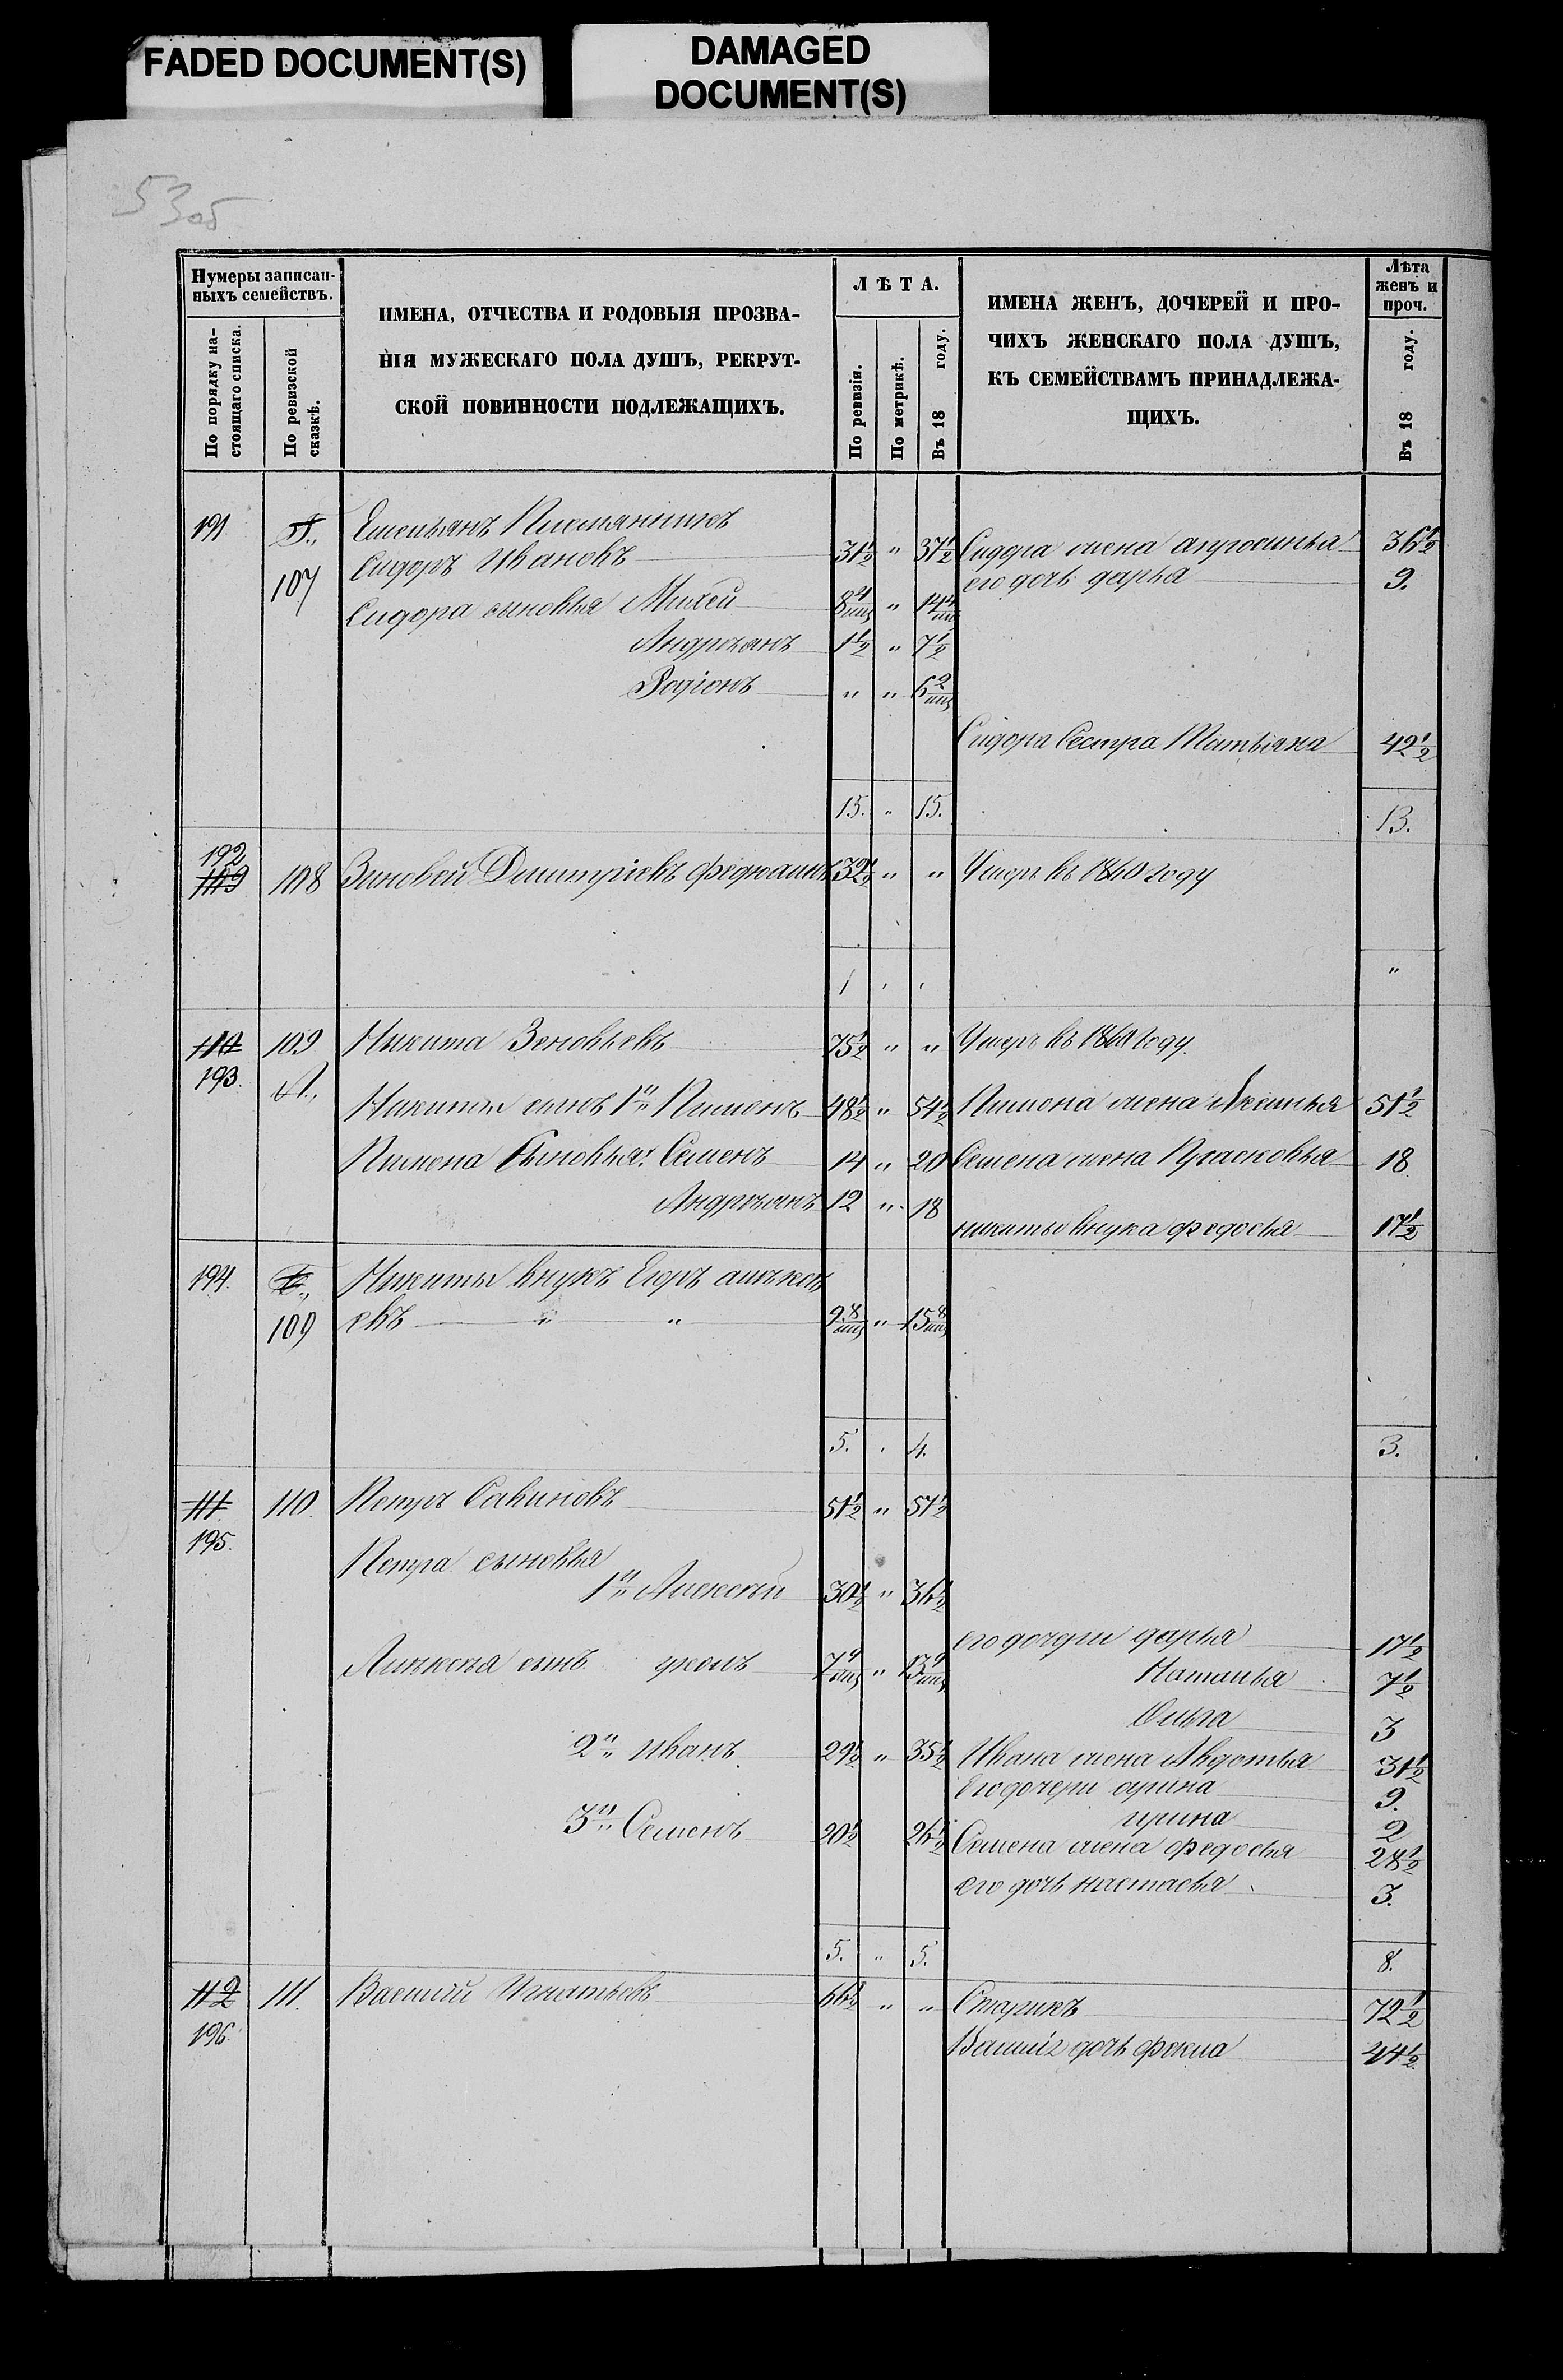 FADED DOCUMENT(S)
DAMAGED
DOCUMENT(S)
53об
Нумеры записан-
ныхъ семействъ.
По порядку на-
стоящаго списка.
По ревизской
сказкѣ.
ИМЕНА, ОТЧЕСТВА И РОДОВЫЯ ПРОЗВА-
НІЯ МУЖЕСКАГО ПОЛА ДУШЪ, РЕКРУТ-
СКОЙ ПОВИННОСТИ ПОДЛЕЖАЩИХЪ.
ЛѢТА.
По ревизіи.
По метрикѣ.
Въ 18 году.
ИМЕНА ЖЕНЪ, ДОЧЕРЕЙ И ПРО-
ЧИХЪ ЖЕНСКАГО ПОЛА ДУШЪ,
КЪ СЕМЕЙСТВАМЪ ПРИНАДЛЕЖА-
ЩИХЪ.
Лѣта
женъ и
проч.
Въ 18 году.
191. Емельянъ Племянникъ
107 Сидоръ Ивановъ 31½ " 37½ Сидора жена агрофинья 36½
его дочь дарья 9.
Сидора сыновья Михей 8 4/мц " 14 4/мц
Андреянъ 1½ " 7½
Родіонъ " " 6 2/мц
Сидора Сестра Татьяна 42½
15. " 15. 13.
192
109 108 Зиновей Димитріевъ федюшин 32½ " " Умеръ въ 1860 году
1 " " "
110 109 Никита Зеновьевъ 75½ " " Умеръ въ 1860 году.
193. А., Никиты сынъ 1й Пименъ 48½ " 54½ Пимена жена Аксинья 51½
Пимена Сыновья: Семенъ 14 " 20 Семена жена Прасковья 18
Андреянъ 12 " 18
никиты внука федосья 17½
194. Б., Никиты внукъ Егоръ алѣксѣ
109 евъ " " 9 8/мц " 15 8/мц
5. " 4. 3.
111. 110. Петръ Савиновъ 51½ " 57½
195.
Петра сыновья
1й Алексѣй 30½ " 36½
его дочери дарья 17½
Алѣксѣя сынъ 7 9/мц " 13 9/мц
Наталья 7½
Ольга 3
2й Иванъ 29½ " 35½ Ивана жена Авдотья 31½
Его дочери арина 9.
ирина 2
3й Семенъ 20½ 26½ Семена жена федосья 28½
его дочь настасья 3.
5. " 5. 8.
112 111. Василій Игнатьевъ 66½ " " Старикъ 72½
196. дочь фекла 44½